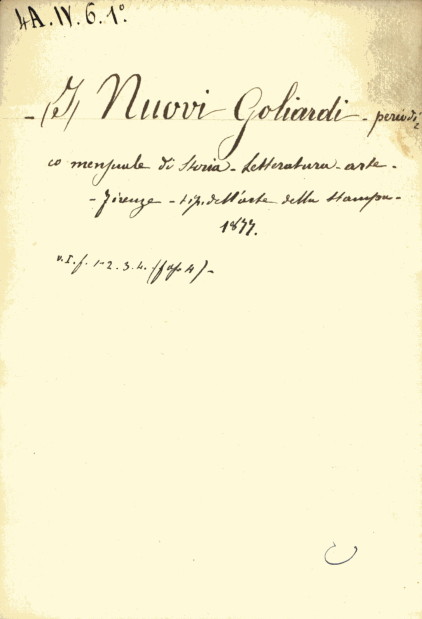 4A.IV.6.1º.
-(I) Nuovi Goliardi - periodi
co mensuale di Storia - Letteratura - arte -
- Firenze - tip. dell'arte della stampa -
1877.
v. I. f. 1-2.3.4. (fasc 4) -